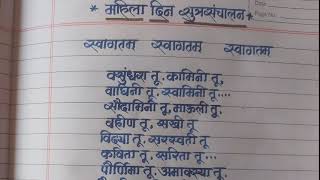 * महिला दिन सुत्रसंचालन *
स्वागतम स्वागतम स्वागतम
वसुंधरा तू. कामिनी तू,
वाघिनी तू. स्वामिनी तू....
सौदामिनी तू, माऊली तू.
बहीण तू. सखी तू
विद्या तू. सरस्वती तू
कविता तू. सरिता तू...
पौर्णिमा तू. अमावस्या तू.